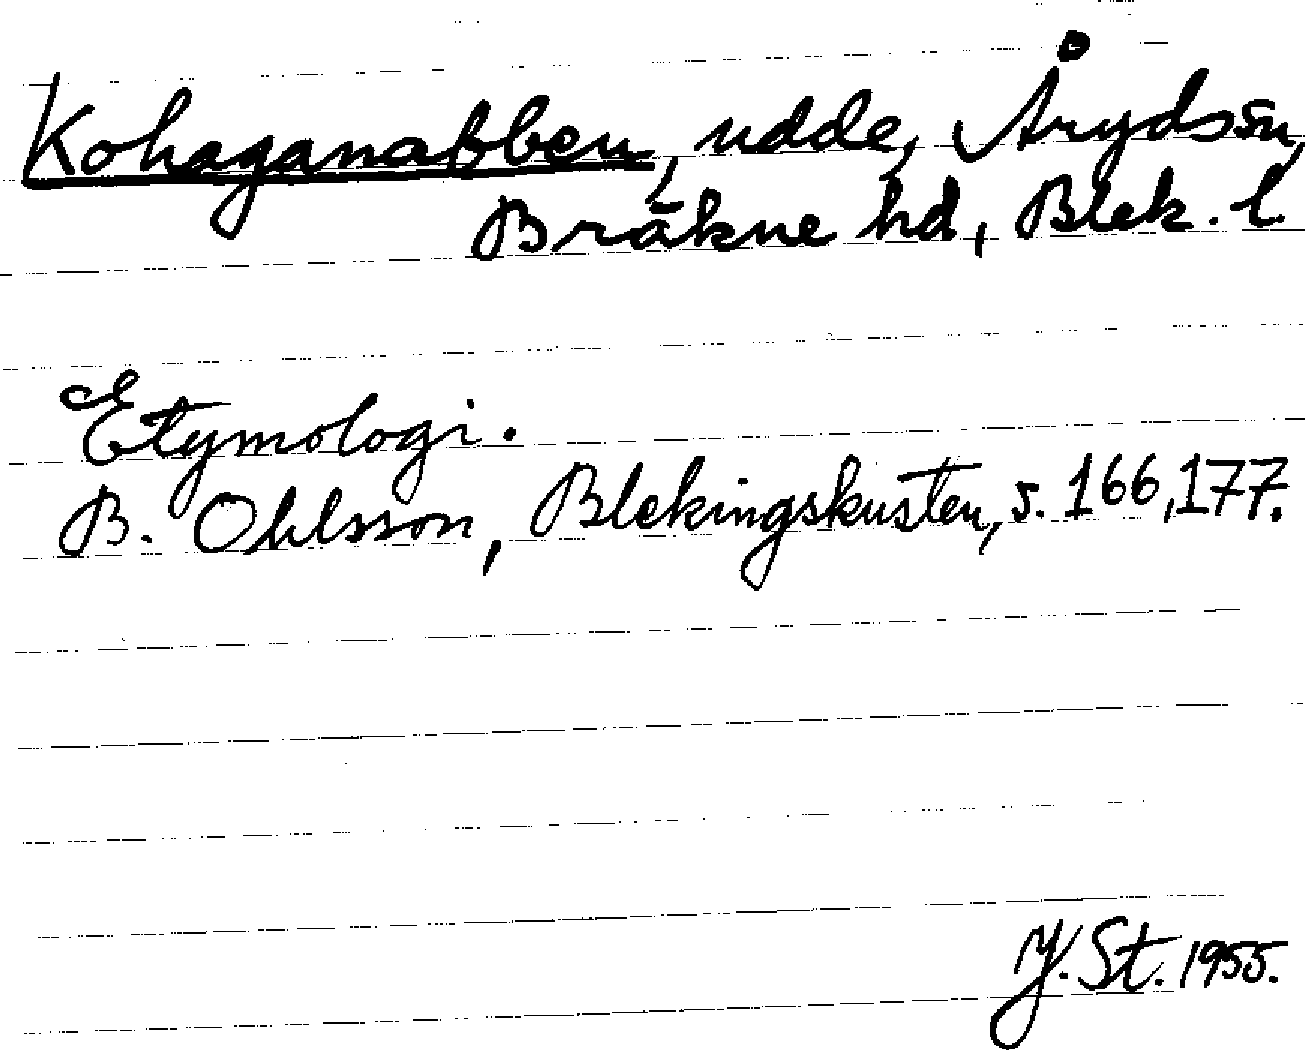 Kohaganabben, udde, Årydssn,
Bräkne hd, Blek. l.
Etymologi.
B. Ohlsson, Blekingskusten, s. 166, 177.
Y. St. 1955.